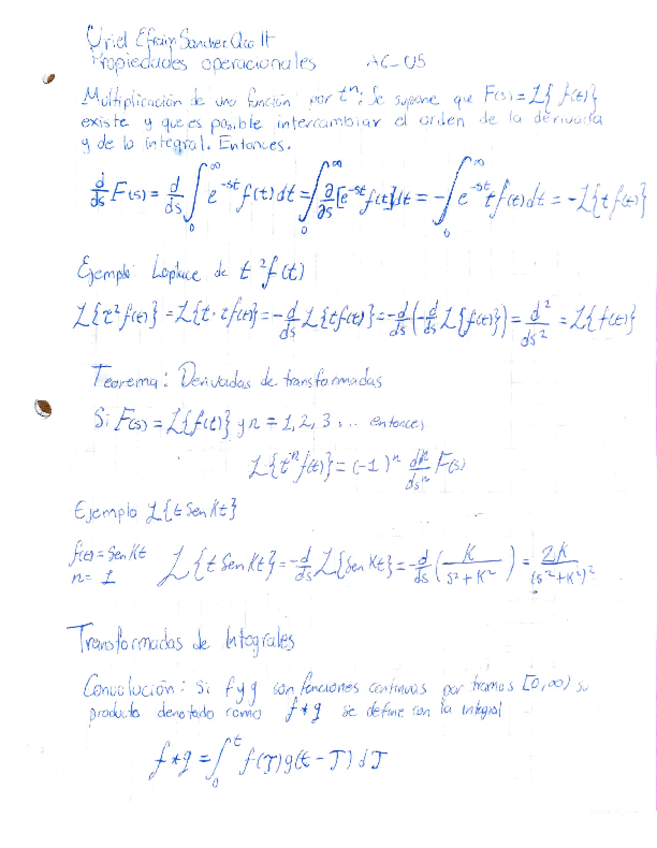 Uriel Efrain Sanchez Aco IT
Propiedades operacionales AC-05
Multiplicación de una función por tⁿ: Se supone que F(s) = ℒ{f(t)}
existe y que es posible intercambiar el orden de la derivada
y de la integral. Entonces.
d/ds F(s) = d/ds ∫₀^∞ e^-st f(t) dt = ∫₀^∞ ∂/∂s [e^-st f(t)] dt = -∫₀^∞ e^-st t f(t) dt = -ℒ{t f(t)}
Ejemplo Laplace de t² f(t)
ℒ{t² f(t)} = ℒ{t · t f(t)} = -d/ds ℒ{t f(t)} = -d/ds (-d/ds ℒ{f(t)}) = d²/ds² = ℒ{f(t)}
Teorema: Derivadas de transformadas
Si F(s) = ℒ{f(t)} y n = 1, 2, 3 ... entonces
ℒ{tⁿ f(t)} = (-1)ⁿ dⁿ/dsⁿ F(s)
Ejemplo ℒ{t Sen Kt}
f(t) = Sen Kt ℒ{t Sen Kt} = -d/ds ℒ{Sen Kt} = -d/ds (K / S² + K²) = 2K / (s² + K²)²
n = 1
Transformadas de Integrales
Convolución: Si f y g son funciones continuas por tramos [0, ∞) su
producto denotado como f * g se define con la integral
f * g = ∫₀^t f(T) g(t - T) dT